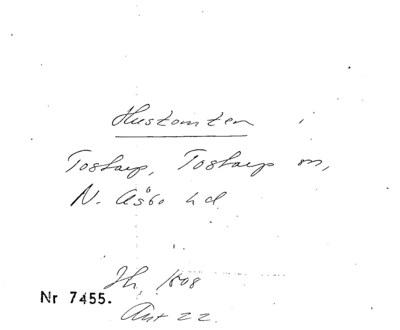 Hustomten
Tostarp, Tostarp sn,
N. Åsbo hd
Ih, 1808
Nr 7455.
Ant 22.